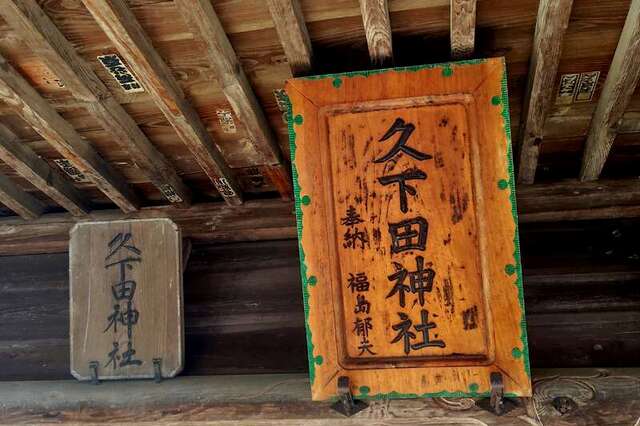 久下田神社
奉納 福島郁夫
久下田神社